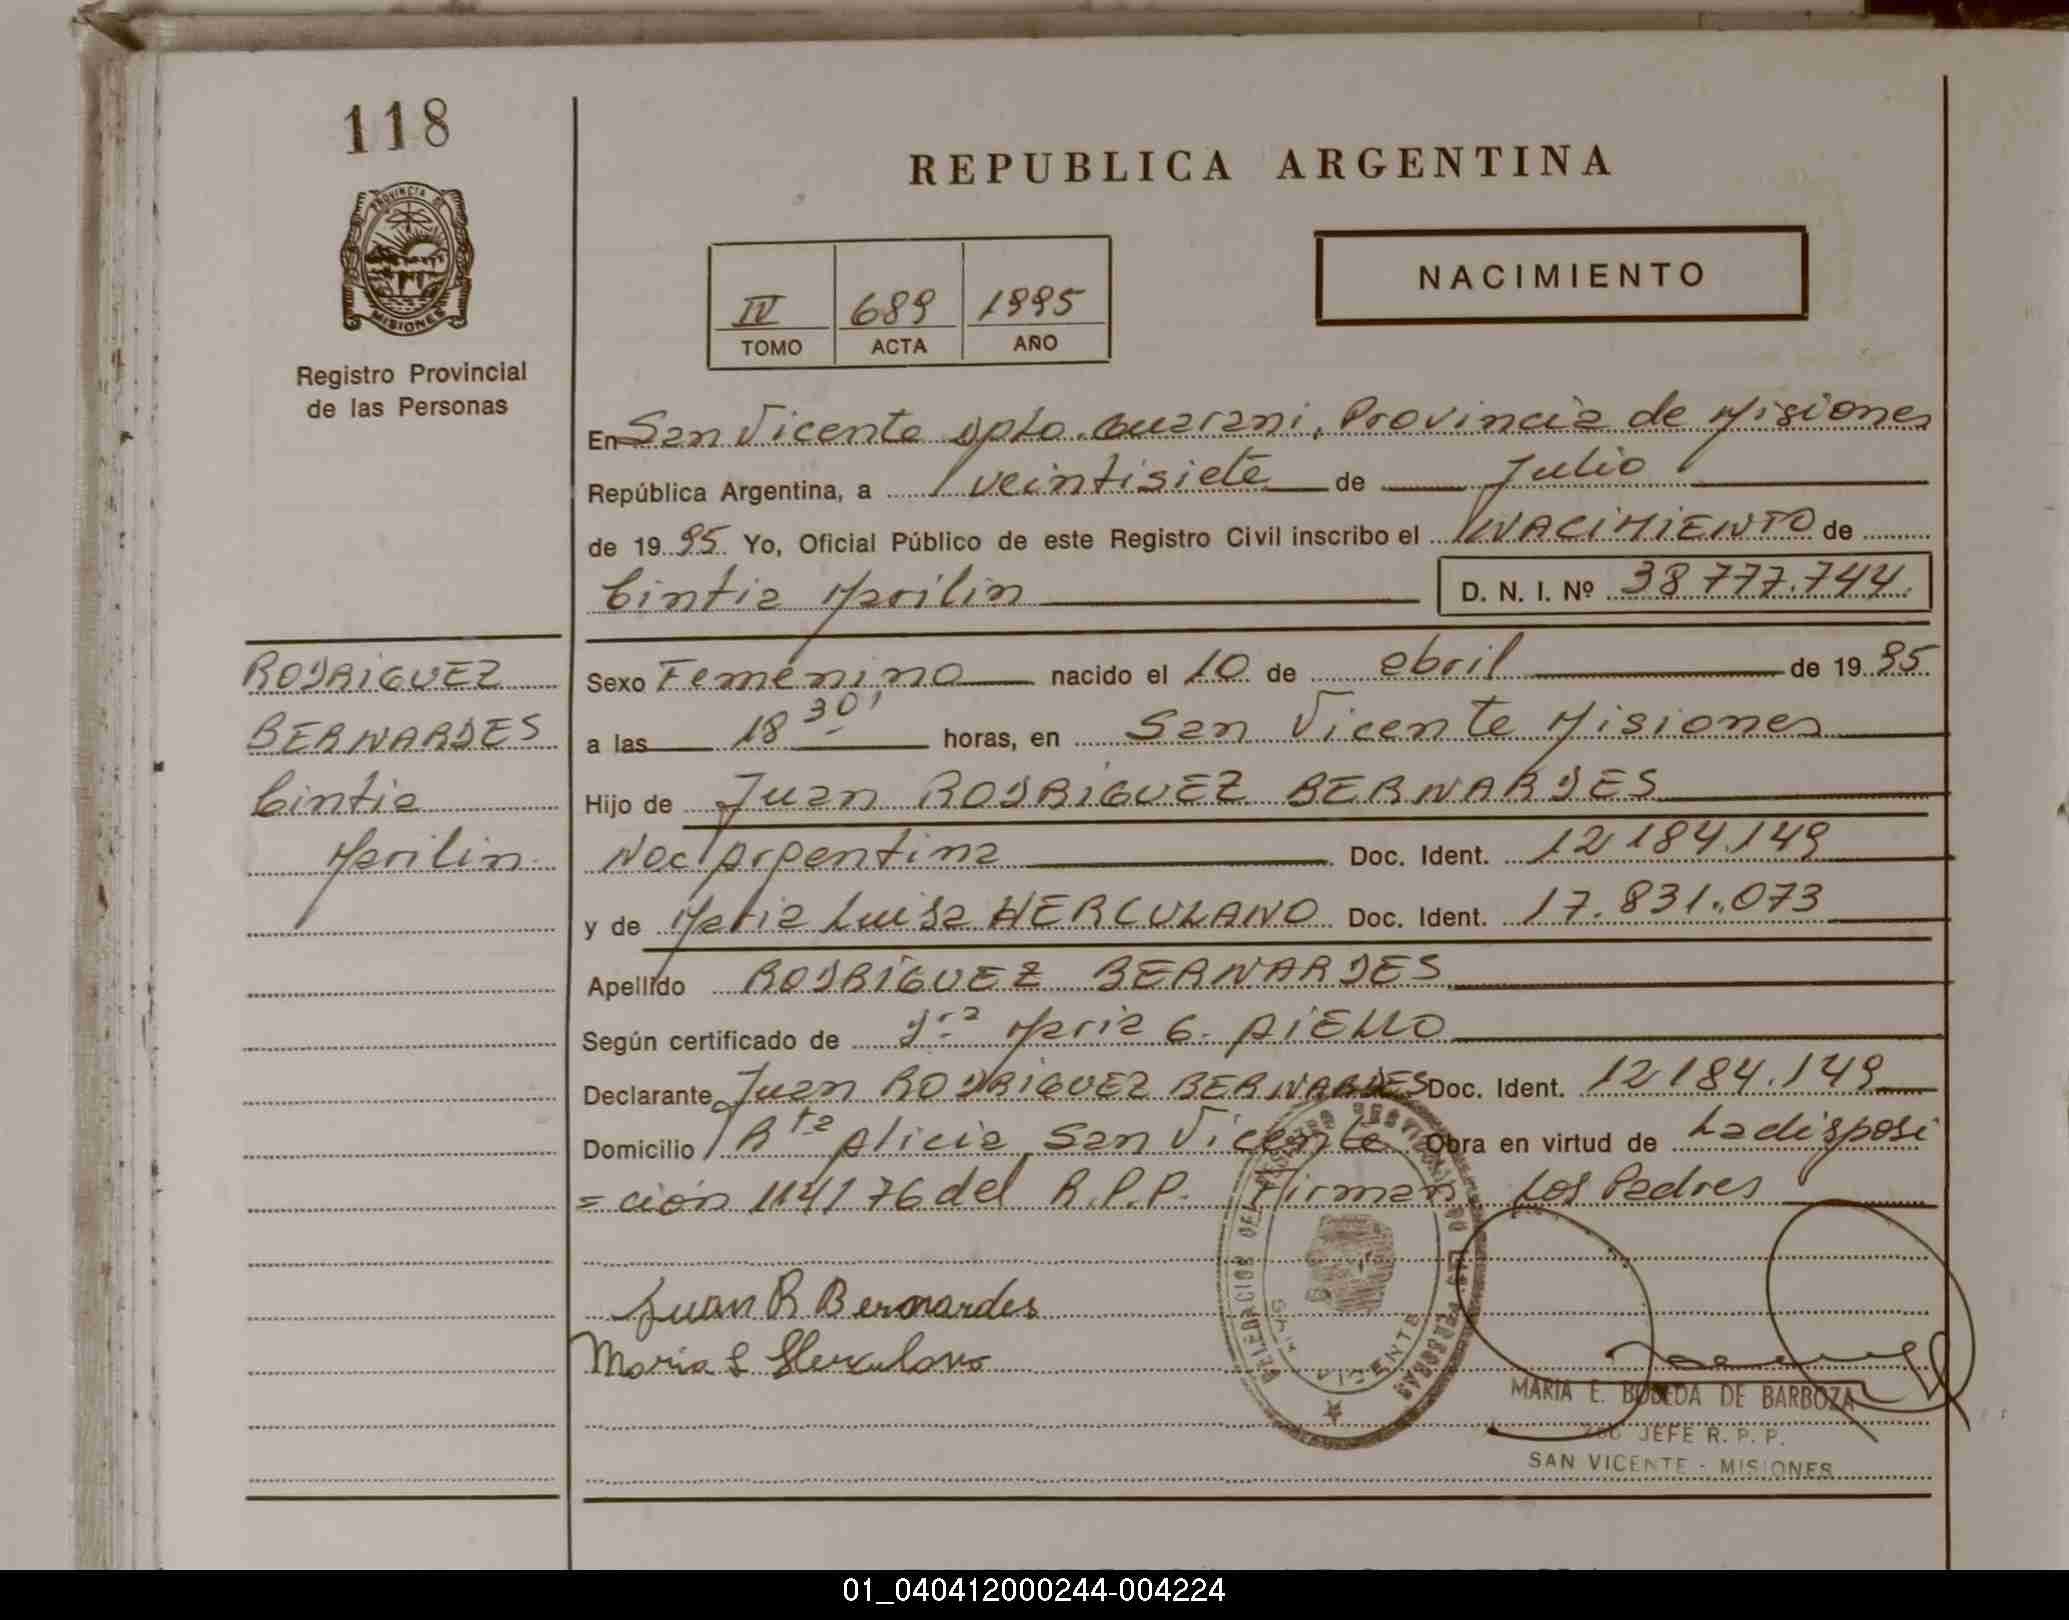 118
PROVINCIA DE
MISIONES
Registro Provincial
de las Personas
REPUBLICA ARGENTINA
IV 689 1995
TOMO ACTA AÑO
NACIMIENTO
En San Vicente Dpto. Guarani, Provincia de Misiones
República Argentina, a veintisiete de Julio
de 1995 Yo, Oficial Público de este Registro Civil inscribo el NACIMIENTO de
Cintia Marilin D. N. I. Nº 38777.744.
RODRIGUEZ
BERNARDES
Cintia
Marilin
Sexo Femenino nacido el 10 de abril de 1995
a las 18 30' horas, en San Vicente Misiones
Hijo de Juan RODRIGUEZ BERNARDES
Nac Argentina Doc. Ident. 12184.149
y de Maria Luisa HERCULANO Doc. Ident. 17.831.073
Apellido RODRIGUEZ BERNARDES
Según certificado de Dra Maria G. AIELLO
Declarante Juan RODRIGUEZ BERNARDES Doc. Ident. 12184.149
Domicilio Rta Alicia San Vicente Obra en virtud de La disposi
=ción 114176 del R.P.P. Firman Los Padres
Juan R Bernardes
Maria L Herculano
DELEGACION DEL REGISTRO PROVINCIAL DE LAS PERSONAS
SAN VICENTE
MARIA E. BOBEDA DE BARBOZA
JEFE R. P. P.
SAN VICENTE - MISIONES
01_040412000244-004224